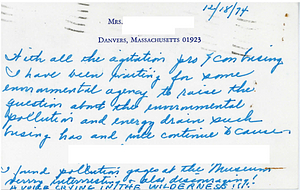 12/18/74
MRS.
DANVERS, MASSACHUSETTS 01923
With all the agitation pro & con busing
I have been waiting for some
environmental agency to raise the
question about the environmental
pollution and energy drain such
busing has and will continue to cause.
I found pollution games at the Museum
very interesting & also discouraging!
A VOICE CRYING IN THE WILDERNESS!!!